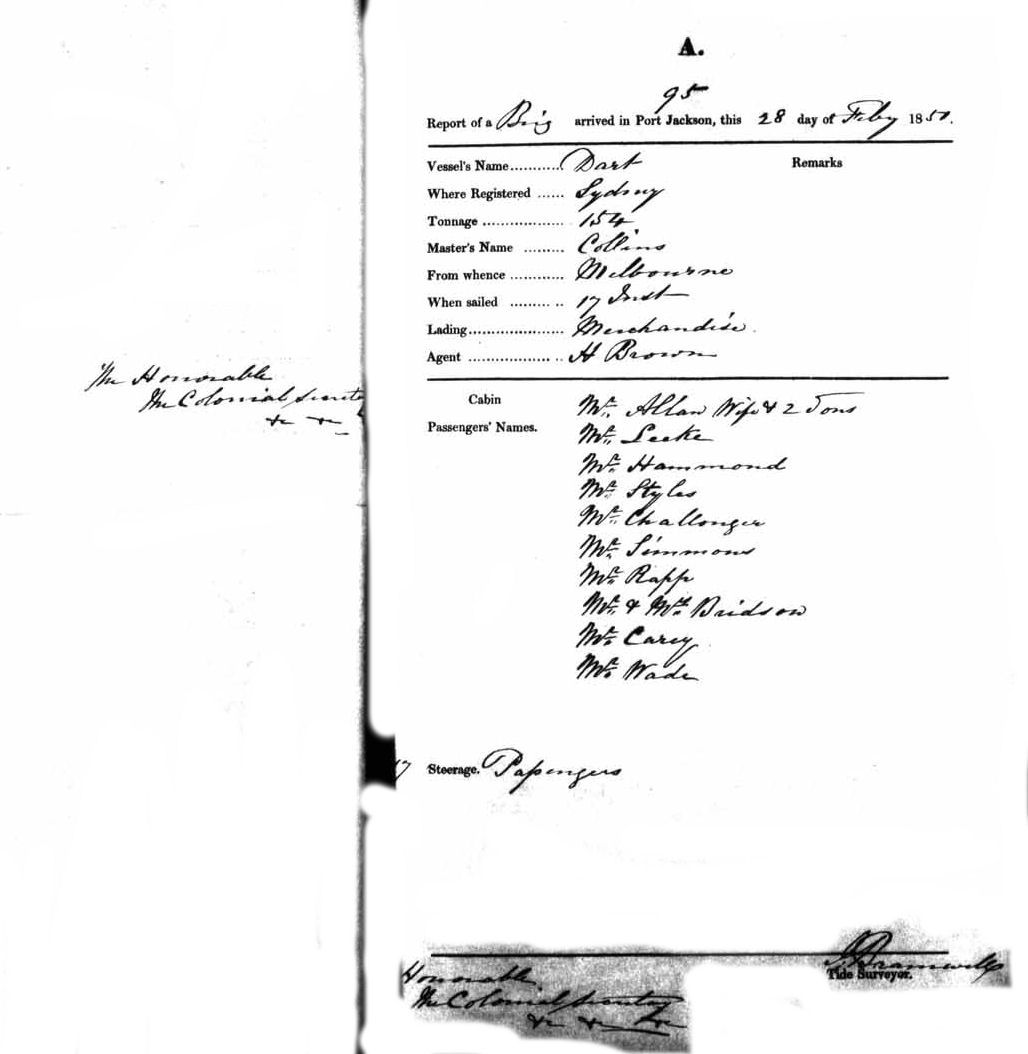 A.
95
Report of a Brig arrived in Port Jackson, this 28 day of Feby 1850.
Vessel's Name........... Dart Remarks
Where Registered ...... Sydney
Tonnage .................. 154
Master's Name ......... Collins
From whence ............ Melbourne
When sailed ......... .. 17 Inst
Lading..................... Merchandise.
Agent .................. .. H Brown
Cabin
Passengers' Names.
Mr. Allan Wife & 2 Sons
Mr. Leeke
Mr. Hammond
Mr. Styles
Mr. Challonger
Mr. Simmons
Mr. Rapp
Mr. & Mrs. Bridson
Mr. Carey
Mr. Wade
17 Steerage. Passengers
Bramwell
Tide Surveyor.
Honorable
The Colonial Secretary
&c &c &c
The Honorable
The Colonial Secreta
&c &c